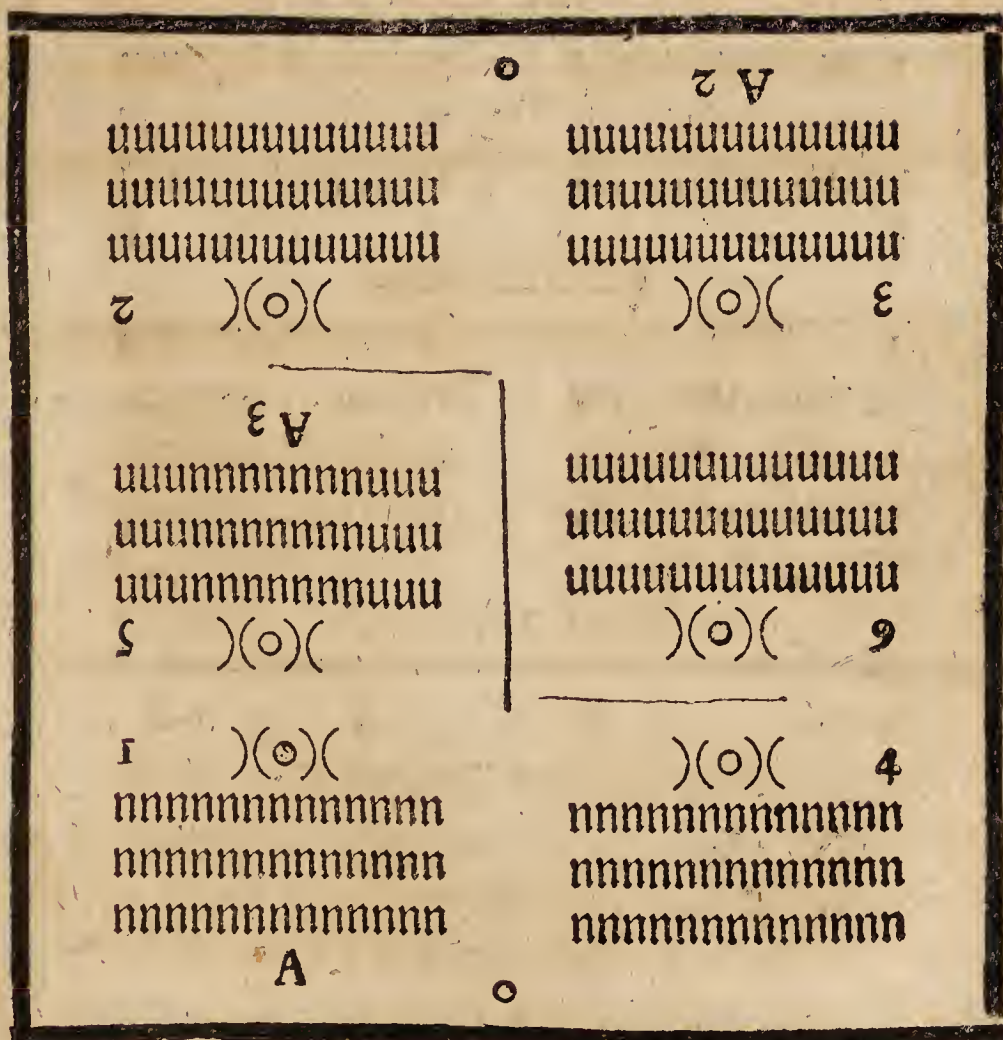 o
uuuuuuuuuuuuu
uuuuuuuuuuuuu
uuuuuuuuuuuuu
2 )(o)(
A 2
uuuuuuuuuuuuu
uuuuuuuuuuuuu
uuuuuuuuuuuuu
)(o)( 3
A 3
uuunnnnnnnuuu
uuunnnnnnnuuu
uuunnnnnnnuuu
5 )(o)(
uuuuuuuuuuuuu
uuuuuuuuuuuuu
uuuuuuuuuuuuu
)(o)( 6
1 )(o)(
nnnnnnnnnnnnn
nnnnnnnnnnnnn
nnnnnnnnnnnnn
A
)(o)( 4
nnnnnnnnnnnnn
nnnnnnnnnnnnn
nnnnnnnnnnnnn
o